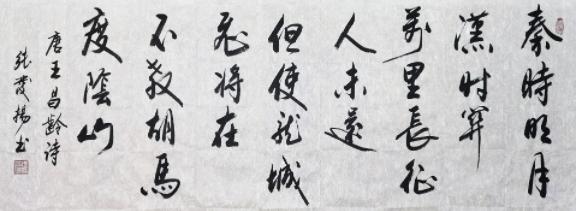 秦時明月
漢時關
萬里長征
人未還
但使龍城
飛將在
不教胡馬
度陰山
唐王昌齡詩